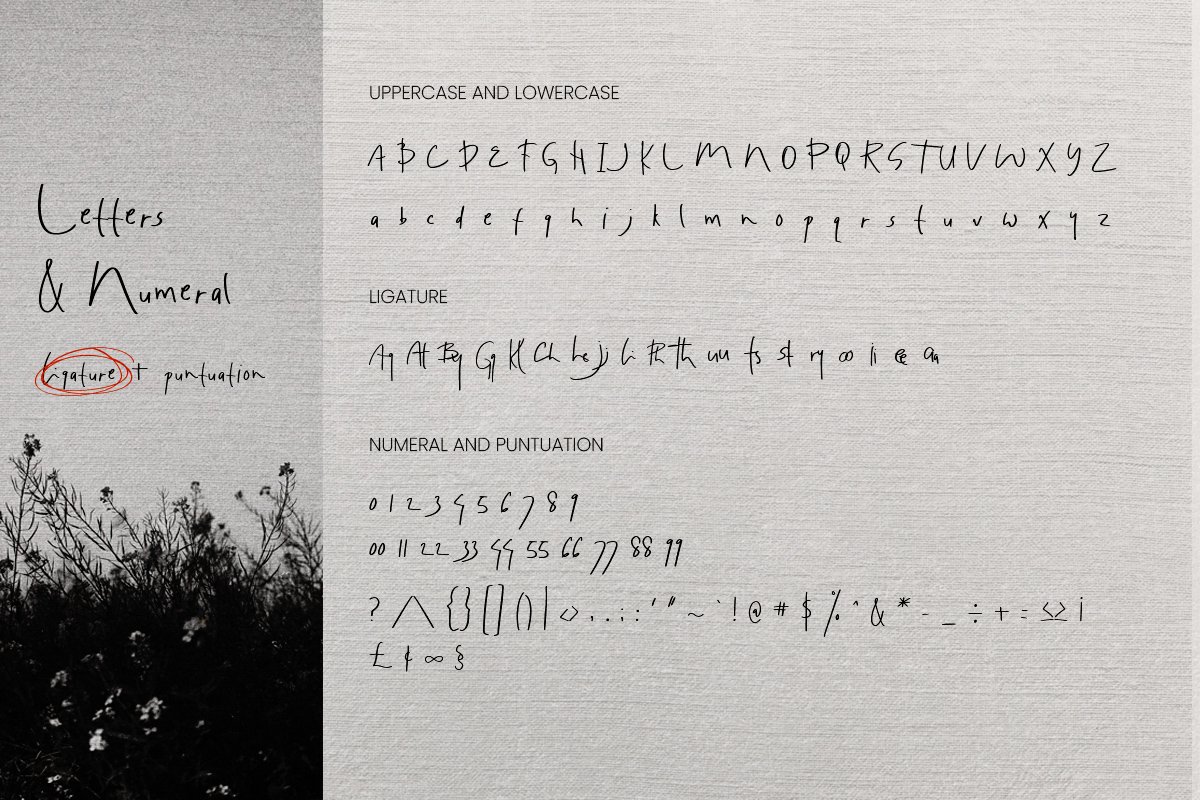 Letters
& Numeral
Ligature + puntuation
UPPERCASE AND LOWERCASE
A B C D E F G H I J K L M N O P Q R S T U V W X Y Z
a b c d e f g h i j k l m n o p q r s t u v w x y z
LIGATURE
Ag At Eg Gg Kl Ch he jj li Th uu ts st ry oo ii ee aa
NUMERAL AND PUNTUATION
0 1 2 3 4 5 6 7 8 9
00 11 22 33 44 55 66 77 88 99
? / \ { } [ ] ( ) | < > , . ; : ' " ~ ` ! @ # $ % ^ & * - _ ÷ + = ≤ ≥ ¡
£ ¢ ∞ §